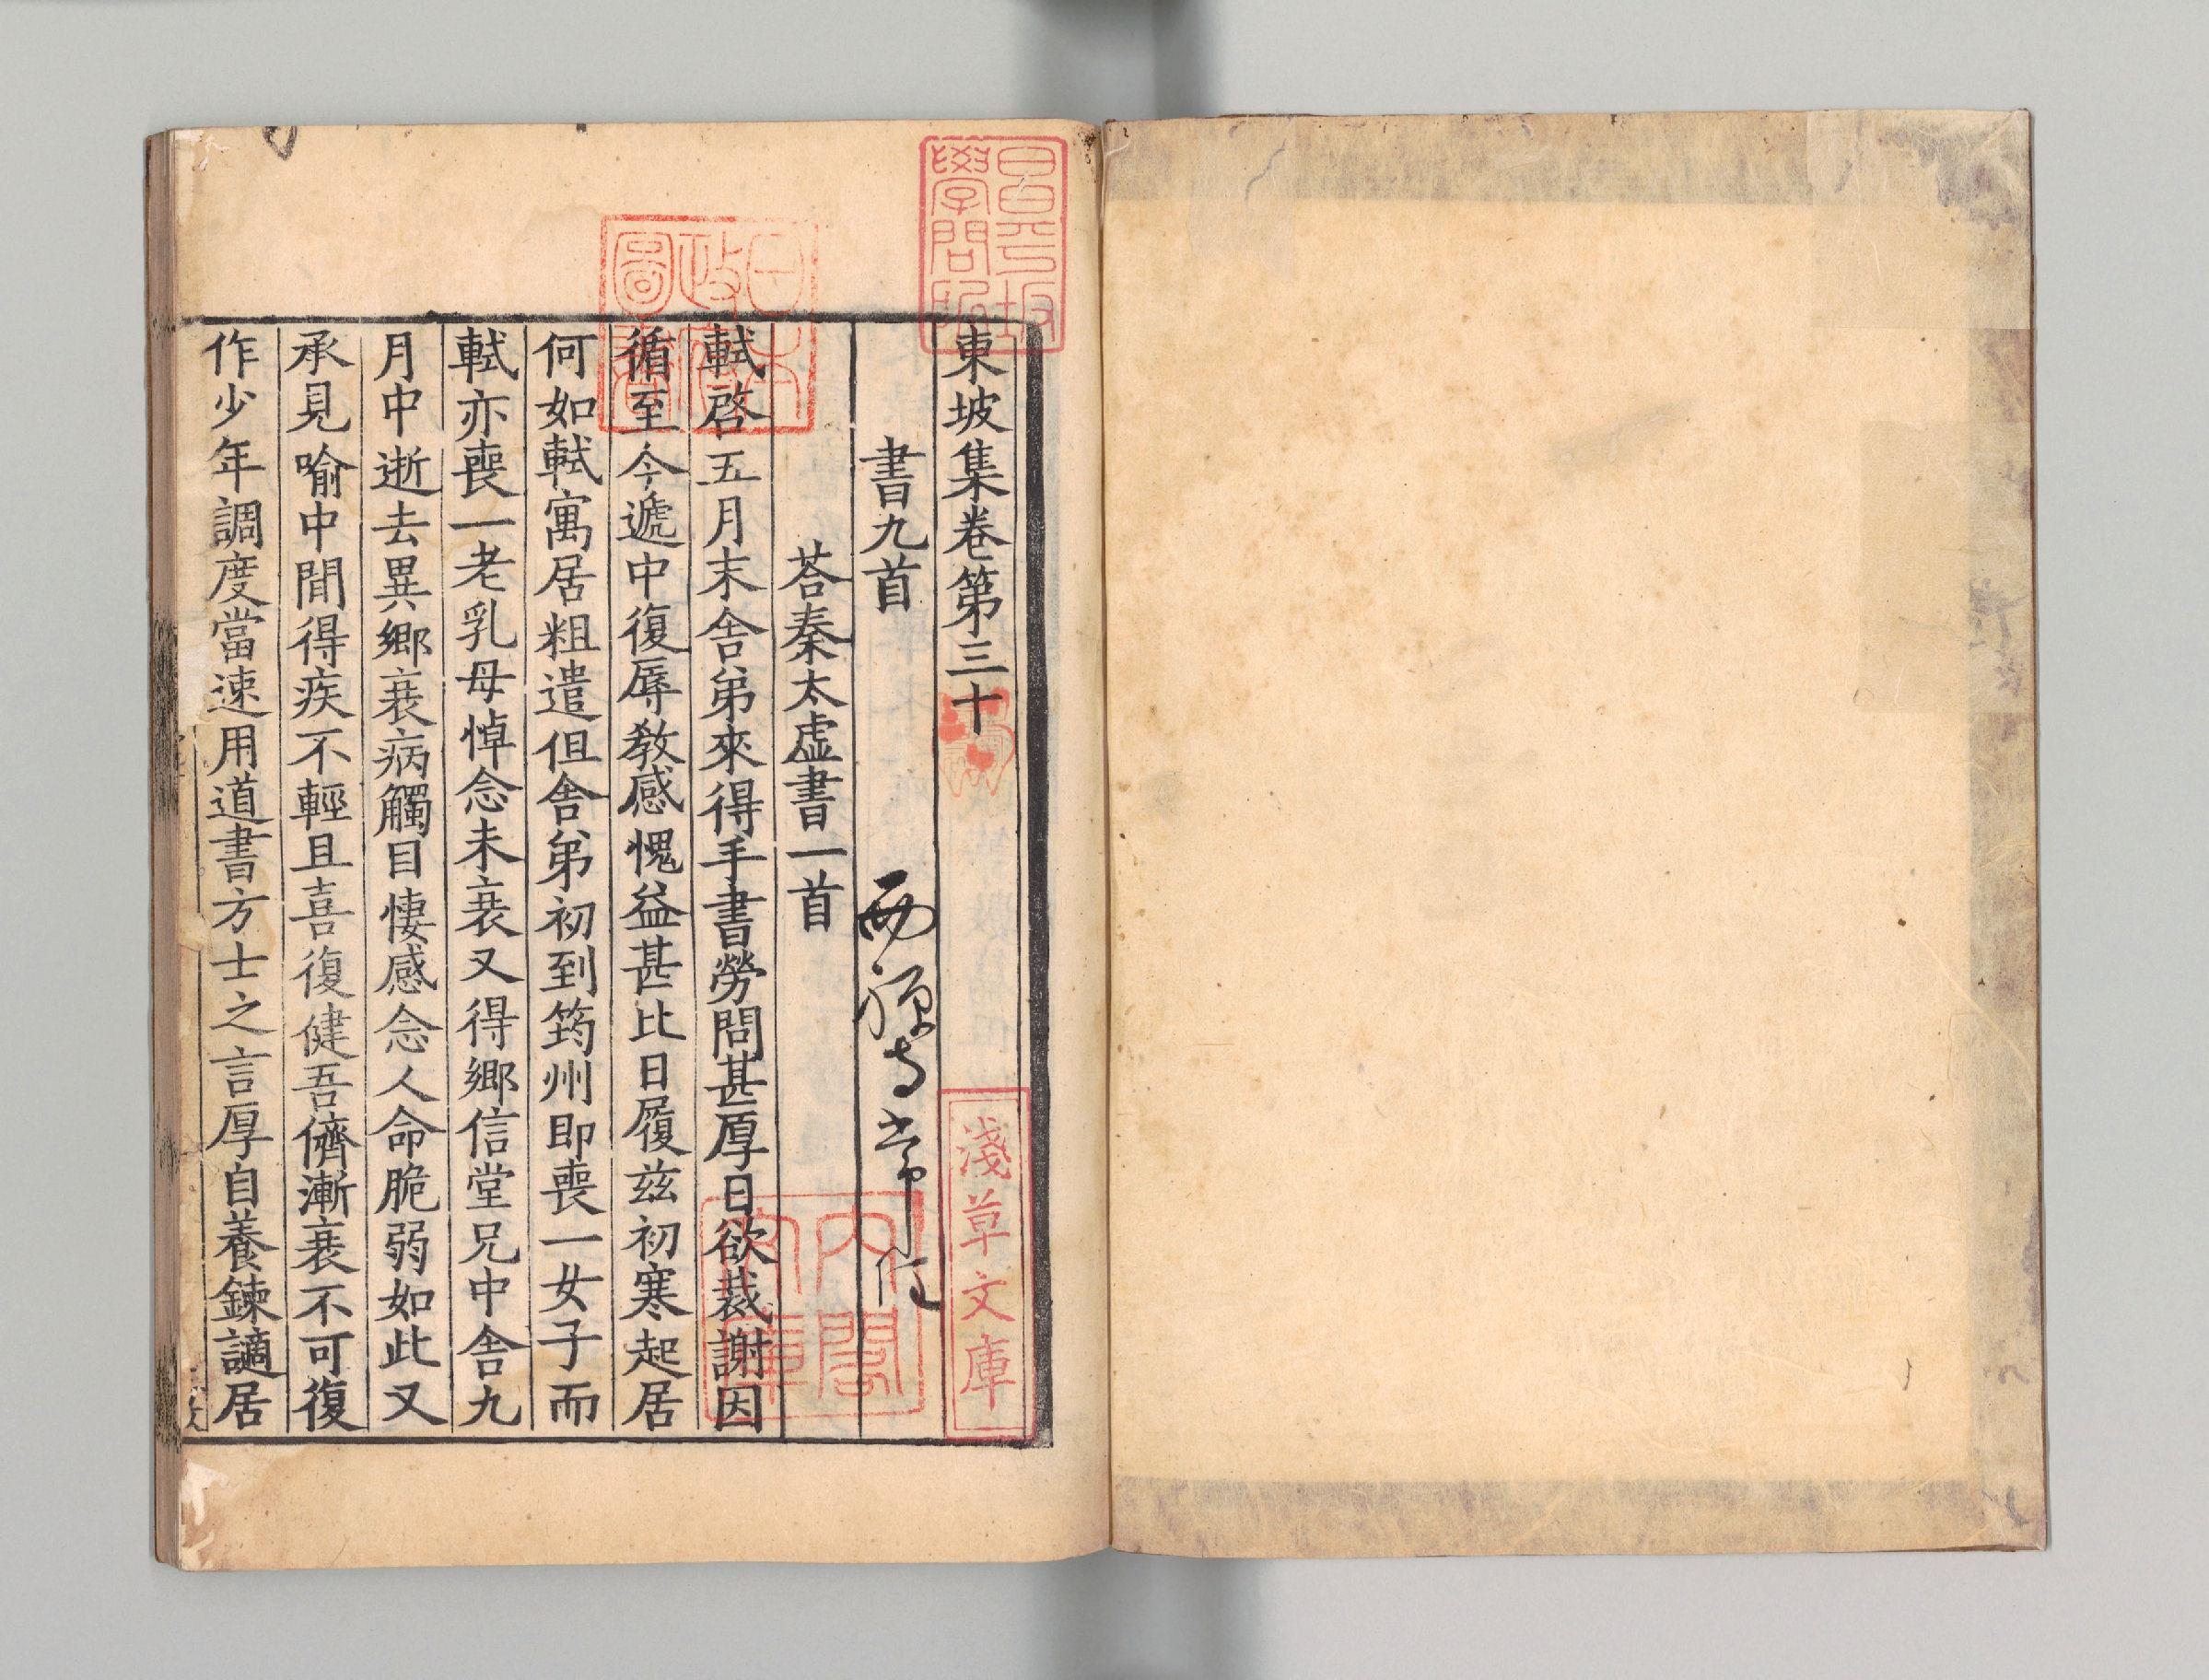 東坡集卷第三十
書九首
西禪寺常住
荅秦太虛書一首
軾啓五月末舍弟來得手書勞問甚厚日欲裁謝因
循至今遞中復辱教感愧益甚比日履茲初寒起居
何如軾寓居粗遣但舍弟初到筠州即喪一女子而
軾亦喪一老乳母悼念未衰又得鄉信堂兄中舍九
月中逝去異鄉衰病觸目悽感念人命脆弱如此又
承見喻中間得疾不輕且喜復健吾儕漸衰不可復
作少年調度當速用道書方士之言厚自養鍊謫居
昌平坂
學問所
日本
政府
圖書
淺草文庫
內閣
文庫